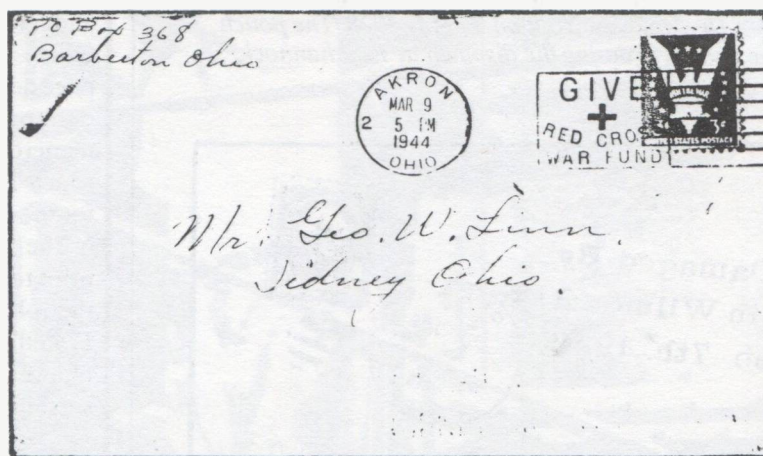 PO Box 368
Barberton Ohio
AKRON
MAR 9
2 5 PM
1944
OHIO
GIVE
RED CROSS
WAR FUND
WIN THE WAR
3¢
UNITED STATES POSTAGE
Mr. Geo. W. Linn.
Sidney Ohio.